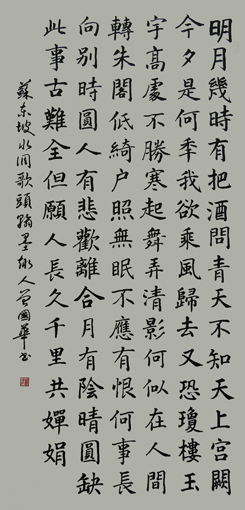 明月幾時有把酒問青天不知天上宮闕
今夕是何秊我欲乘風歸去又恐瓊樓玉
宇高處不勝寒起舞弄清影何似在人間
轉朱閣低綺户照無眠不應有恨何事長
向別時圓人有悲歡離合月有陰晴圓缺
此事古難全但願人長久千里共嬋娟
蘇東坡水調歌頭翰墨人曾國華書